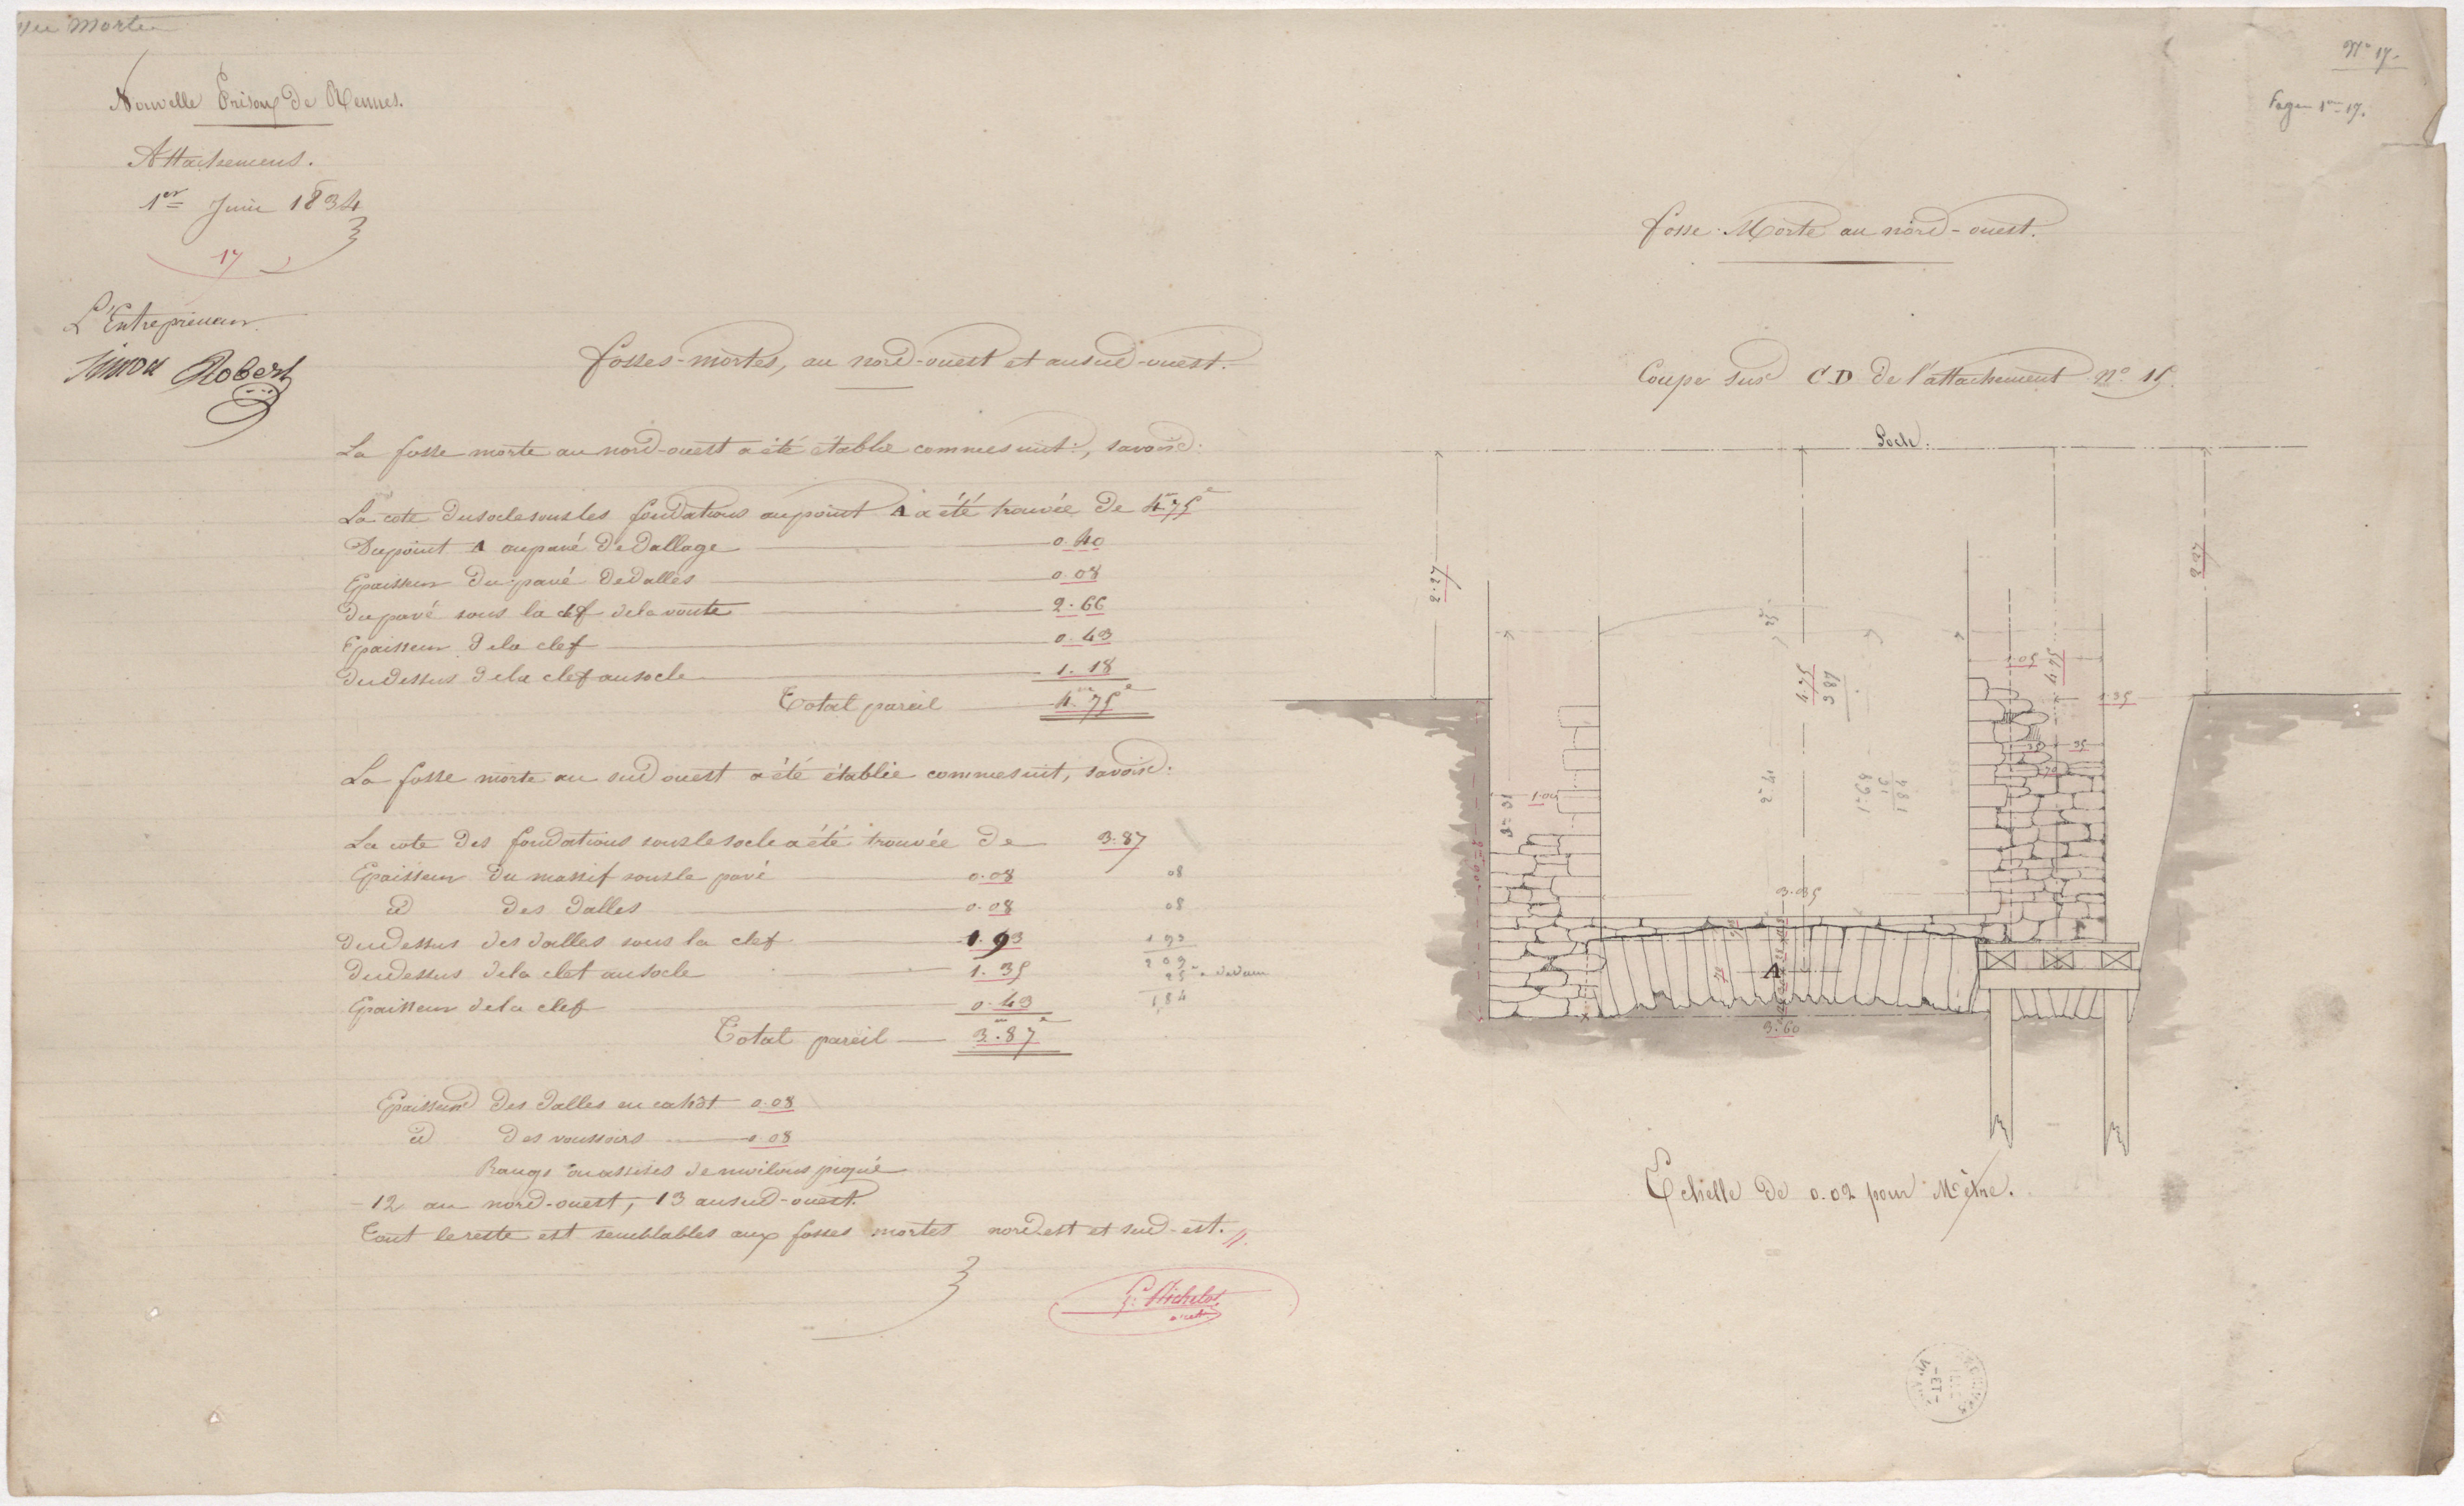 Morte
Nouvelle Prison de Rennes.
Attachemens.
1er Juin 1834
17
L'Entrepreneur.
Simon Robert
Fosses-mortes, au nord-ouest et au sud-ouest.
La fosse morte au nord-ouest a été établie comme suit, savoir:
La cote du socle sous les fondations au point A a été trouvée de 4m75c
Du point A au pavé de dallage 0.40
Epaisseur du pavé de dalles 0.08
Du pavé sous la clef de la voute 2.66
Epaisseur de la clef 0.43
Du dessus de la clef au socle 1.18
Total pareil 4m75c
La fosse morte au sud ouest a été établie comme suit, savoir:
La cote des fondations sous le socle a été trouvée de 3.87
Epaisseur du massif sous le pavé 0.08 08
id des dalles 0.08 08
Du dessus des dalles sous la clef 1.93 1 93
2 09
Du dessus de la clef au socle 1.35 25
Epaisseur de la clef 0.43 1,84
Total pareil 3m.87c
Epaisseur des dalles en cahot 0.08
id des voussoirs 0.08
Rangs ou assises de moilons piqué
12 au nord-ouest, 13 au sud-ouest.
Tout le reste est semblables aux fosses mortes nord est et sud-est.
N° 17.
17.
Fosse Morte au nord-ouest.
Coupe sur C.D de l'attachement N° 15.
Socle.
2.27
2.27
4.75
3 87
4.75
1.05
1.35
35
1.00
3.035
A
3.60
Echelle de 0.02 pour Mètre.
-ET-